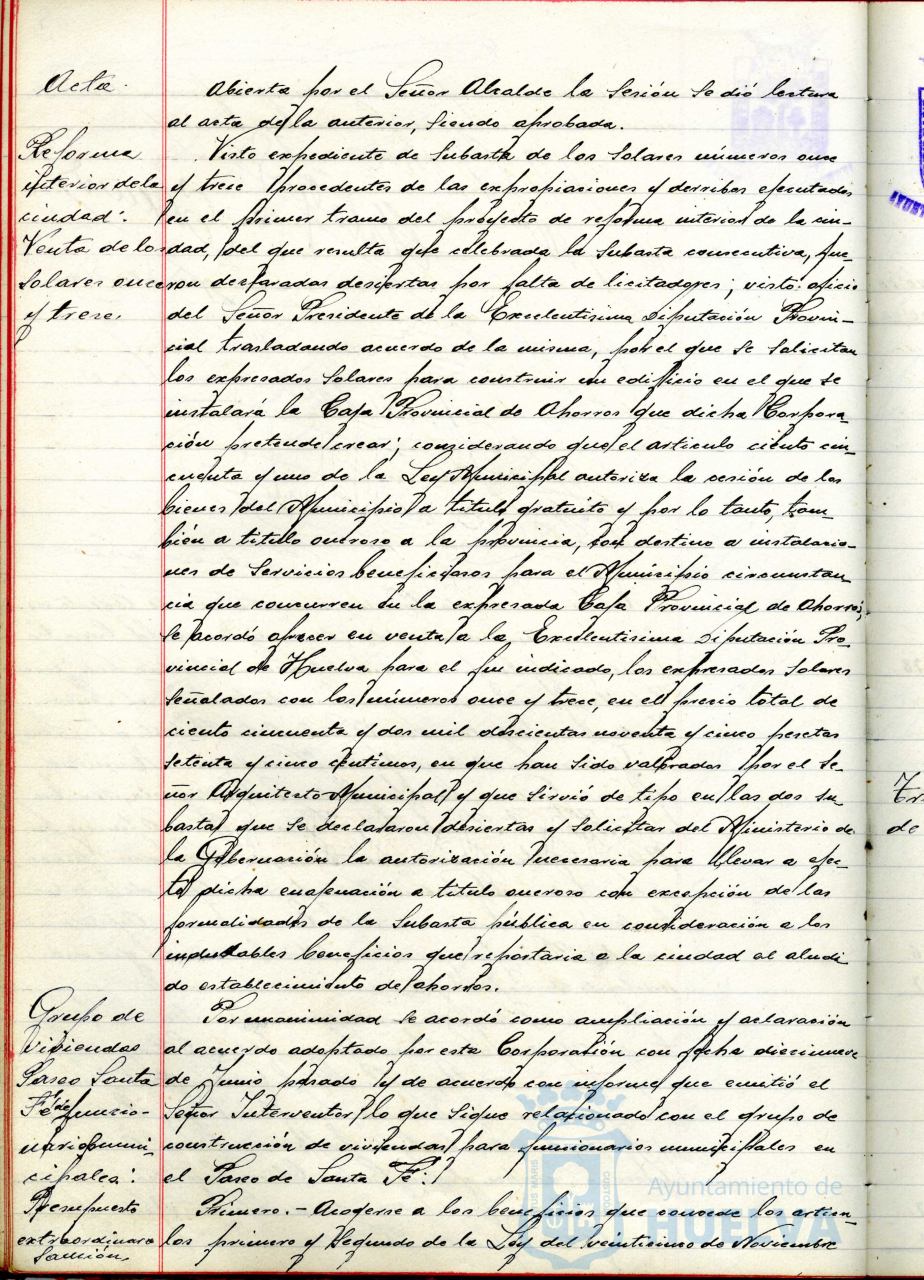 Acta.
Abierta por el Señor Alcalde la Sesión Se dió lectura
al acta de la anterior, siendo aprobada.
Reforma
interior de la
ciudad:
Venta de los
solares once
y trece.
Visto expediente de Subasta de los Solares números once
y trece procedentes de las expropiaciones y derribos ejecutados
en el primer tramo del proyecto de reforma interior de la ciu-
dad, del que resulta que celebrada la Subasta consecutiva, fue-
ron declaradas desiertas por falta de licitadores; visto oficio
del Señor Presidente de la Excelentisima Diputación Provin-
cial trasladando acuerdo de la misma, por el que se solicitan
los expresados Solares para construir un edificio en el que se
instalará la Caja Provincial de Ahorros que dicha Corpora-
ción pretende crear; considerando que el articulo ciento cin-
cuenta y uno de la Ley Municipal autoriza la cesión de los
bienes del Municipio a titulo gratuito y por lo tanto, tam-
bién a titulo oneroso a la provincia, con destino a instalacio-
nes de Servicios beneficiosos para el Municipio circunstan-
cia que concurren en la expresada Caja Provincial de Ahorros;
se acordó ofrecer en venta a la Excelentisima Diputación Pro-
vincial de Huelva para el fin indicado, los expresados Solares
Señalados con los números once y trece, en el precio total de
ciento cincuenta y dos mil doscientas noventa y cinco pesetas
setenta y cinco centimos, en que han sido valorados por el Se-
ñor Arquitecto Municipal y que sirvió de tipo en las dos su-
bastas que se declararon desiertas y solicitar del Ministerio de
la Gobernación la autorización necesaria para llevar a efec-
to dicha enagenación a titulo oneroso con excepción de las
formalidades de la Subasta pública en consideración a los
indudables beneficios que reportaria a la ciudad el aludi-
do establecimiento de ahorros.
Grupo de
Viviendas
Paseo Santa
Fé de funcio-
narios muni-
cipales:
Presupuesto
extraordinario
Sanción
Por unanimidad se acordó como ampliación y aclaración
al acuerdo adoptado por esta Corporación con fecha diecinueve
de Junio pasado y de acuerdo con informe que emitió el
Señor Interventor lo que sigue relacionado con el grupo de
construcción de viviendas para funcionarios municipales en
el Paseo de Santa Fé:
Primero.- Acogerse a los beneficios que concede los articu-
los primero y Segundo de la Ley del veinticinco de Noviembre
de
Ayuntamiento de
HUELVA